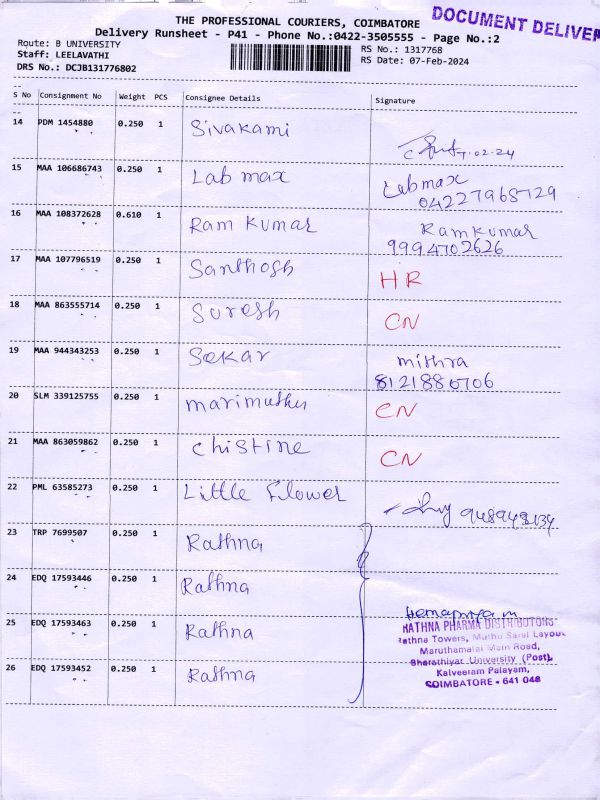 THE PROFESSIONAL COURIERS, COIMBATORE
DOCUMENT DELIVER
Delivery Runsheet - P41 - Phone No.:0422-3505555 - Page No.:2
Route: B UNIVERSITY
RS No.: 1317768
Staff: LEELAVATHI
RS Date: 07-Feb-2024
DRS No.: DCJB131776802
S No Consignment No Weight PCS Consignee Details Signature
14 PDM 1454880 0.250 1 Sivakami
7-02-24
15 MAA 106686743 0.250 1 Lab max Labmax
04227968729
16 MAA 108372628 0.610 1 Ram Kumar Ramkumar
9994702626
17 MAA 107796519 0.250 1 Santhosh HR
18 MAA 863555714 0.250 1 Suresh CN
19 MAA 944343253 0.250 1 Sekar mithra
8121880706
20 SLM 339125755 0.250 1 marimuthu CN
21 MAA 863059862 0.250 1 Chistine CN
22 PML 63585273 0.250 1 Little Flower
23 TRP 7699507 0.250 1 Rathna
24 EDQ 17593446 0.250 1 Rathna
Hemapriya m
25 EDQ 17593463 0.250 1 Rathna
26 EDQ 17593452 0.250 1 Rathna
RATHNA PHARMA DISTRIBUTORS
Rathna Towers, Muthu Saral Layout
Maruthamalai Main Road,
Bharathiyar University (Post),
Kalveeram Palayam,
COIMBATORE - 641 046